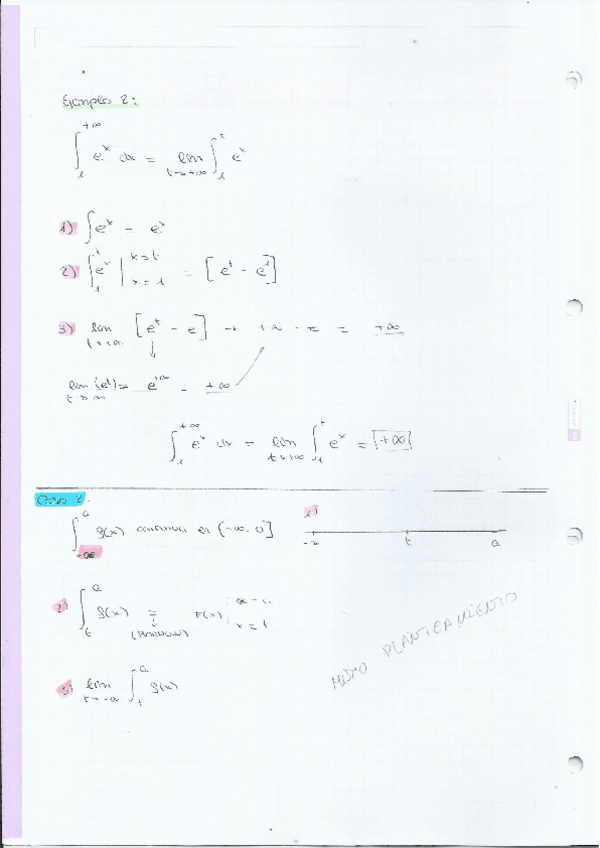 Ejemplo 2:
∫₁^{+∞} eˣ dx = lim_{t→+∞} ∫₁ᵗ eˣ
1) ∫eˣ = eˣ
2) ∫₁ᵗ eˣ |_{x=1}^{x=t} = [eᵗ - e¹]
3) lim_{t→+∞} [eᵗ - e] → +∞ - e = +∞
lim_{t→∞} (eᵗ) = e^{+∞} = +∞
∫₁^{+∞} eˣ dx = lim_{t→+∞} ∫₁ᵗ eˣ = +∞
Caso 2
∫_{-∞}^a f(x) continua en (-∞, a]
1)
-∞ t a
2) ∫ₜᵃ f(x) = (BARROW) F(x) |_{x=t}^{x=a}
MISMO PLANTEAMIENTO
3) lim_{t→-∞} ∫ₜᵃ f(x)